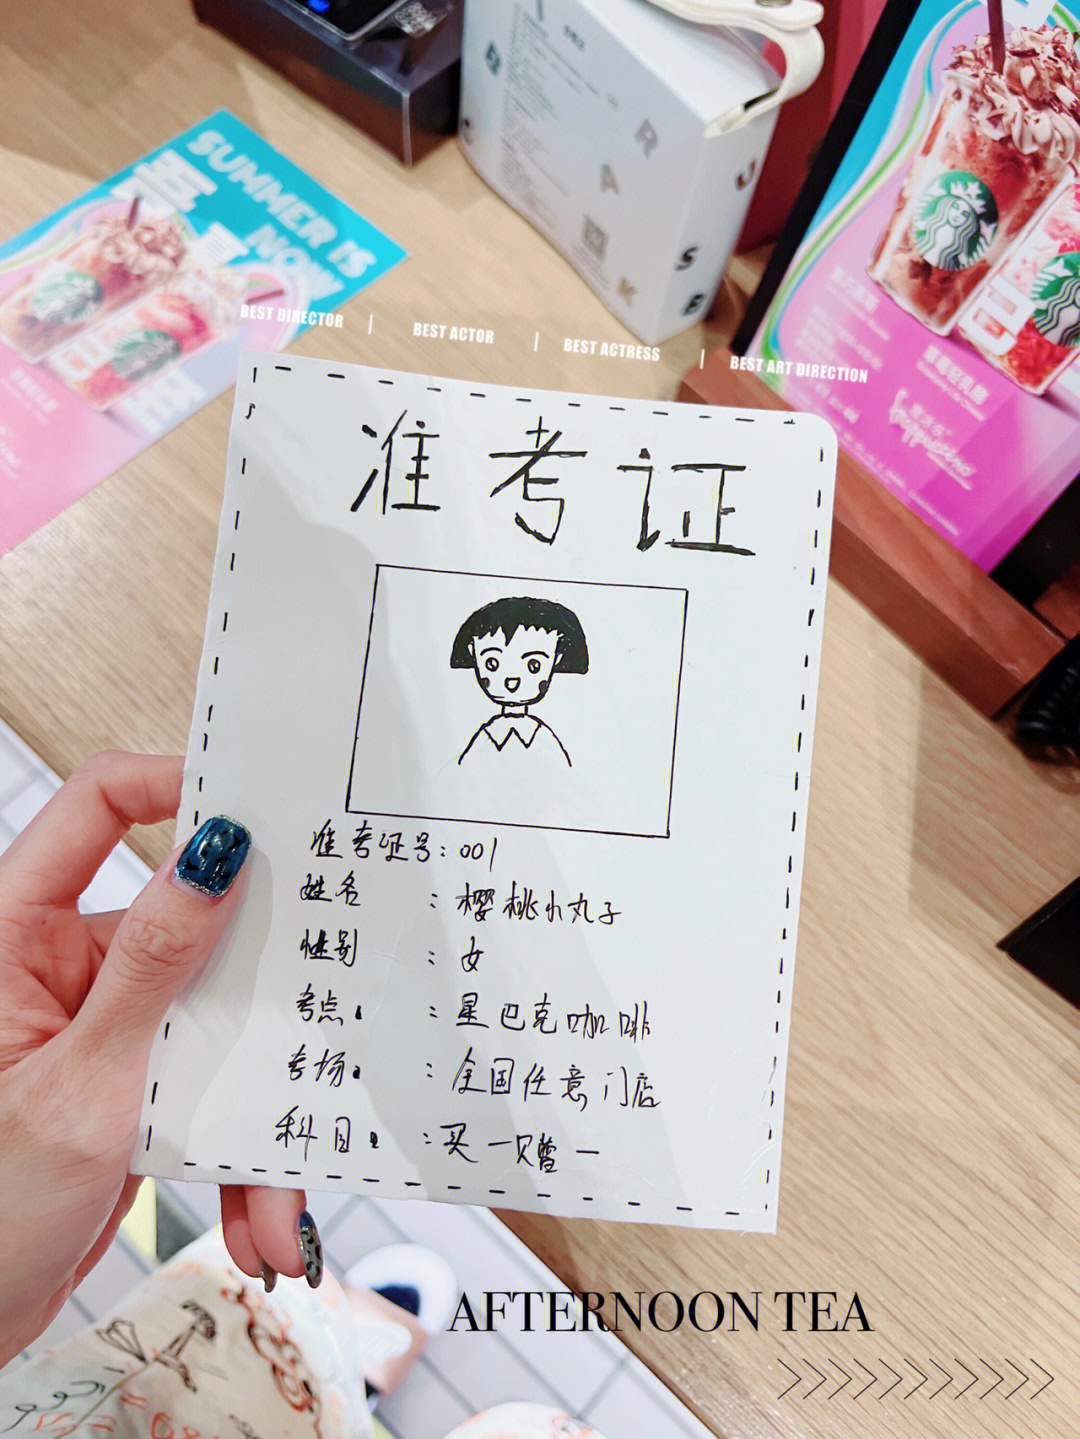 SUMMER IS
NOW
R
A
U
C
S
K
B
BEST DIRECTOR | BEST ACTOR | BEST ACTRESS | BEST ART DIRECTION
frappuccino
准考证
准考证号：001
姓名：樱桃小丸子
性别：女
考点：星巴克咖啡
考场：全国任意门店
科目：买一赠一
AFTERNOON TEA
>>>>>>>>>>>